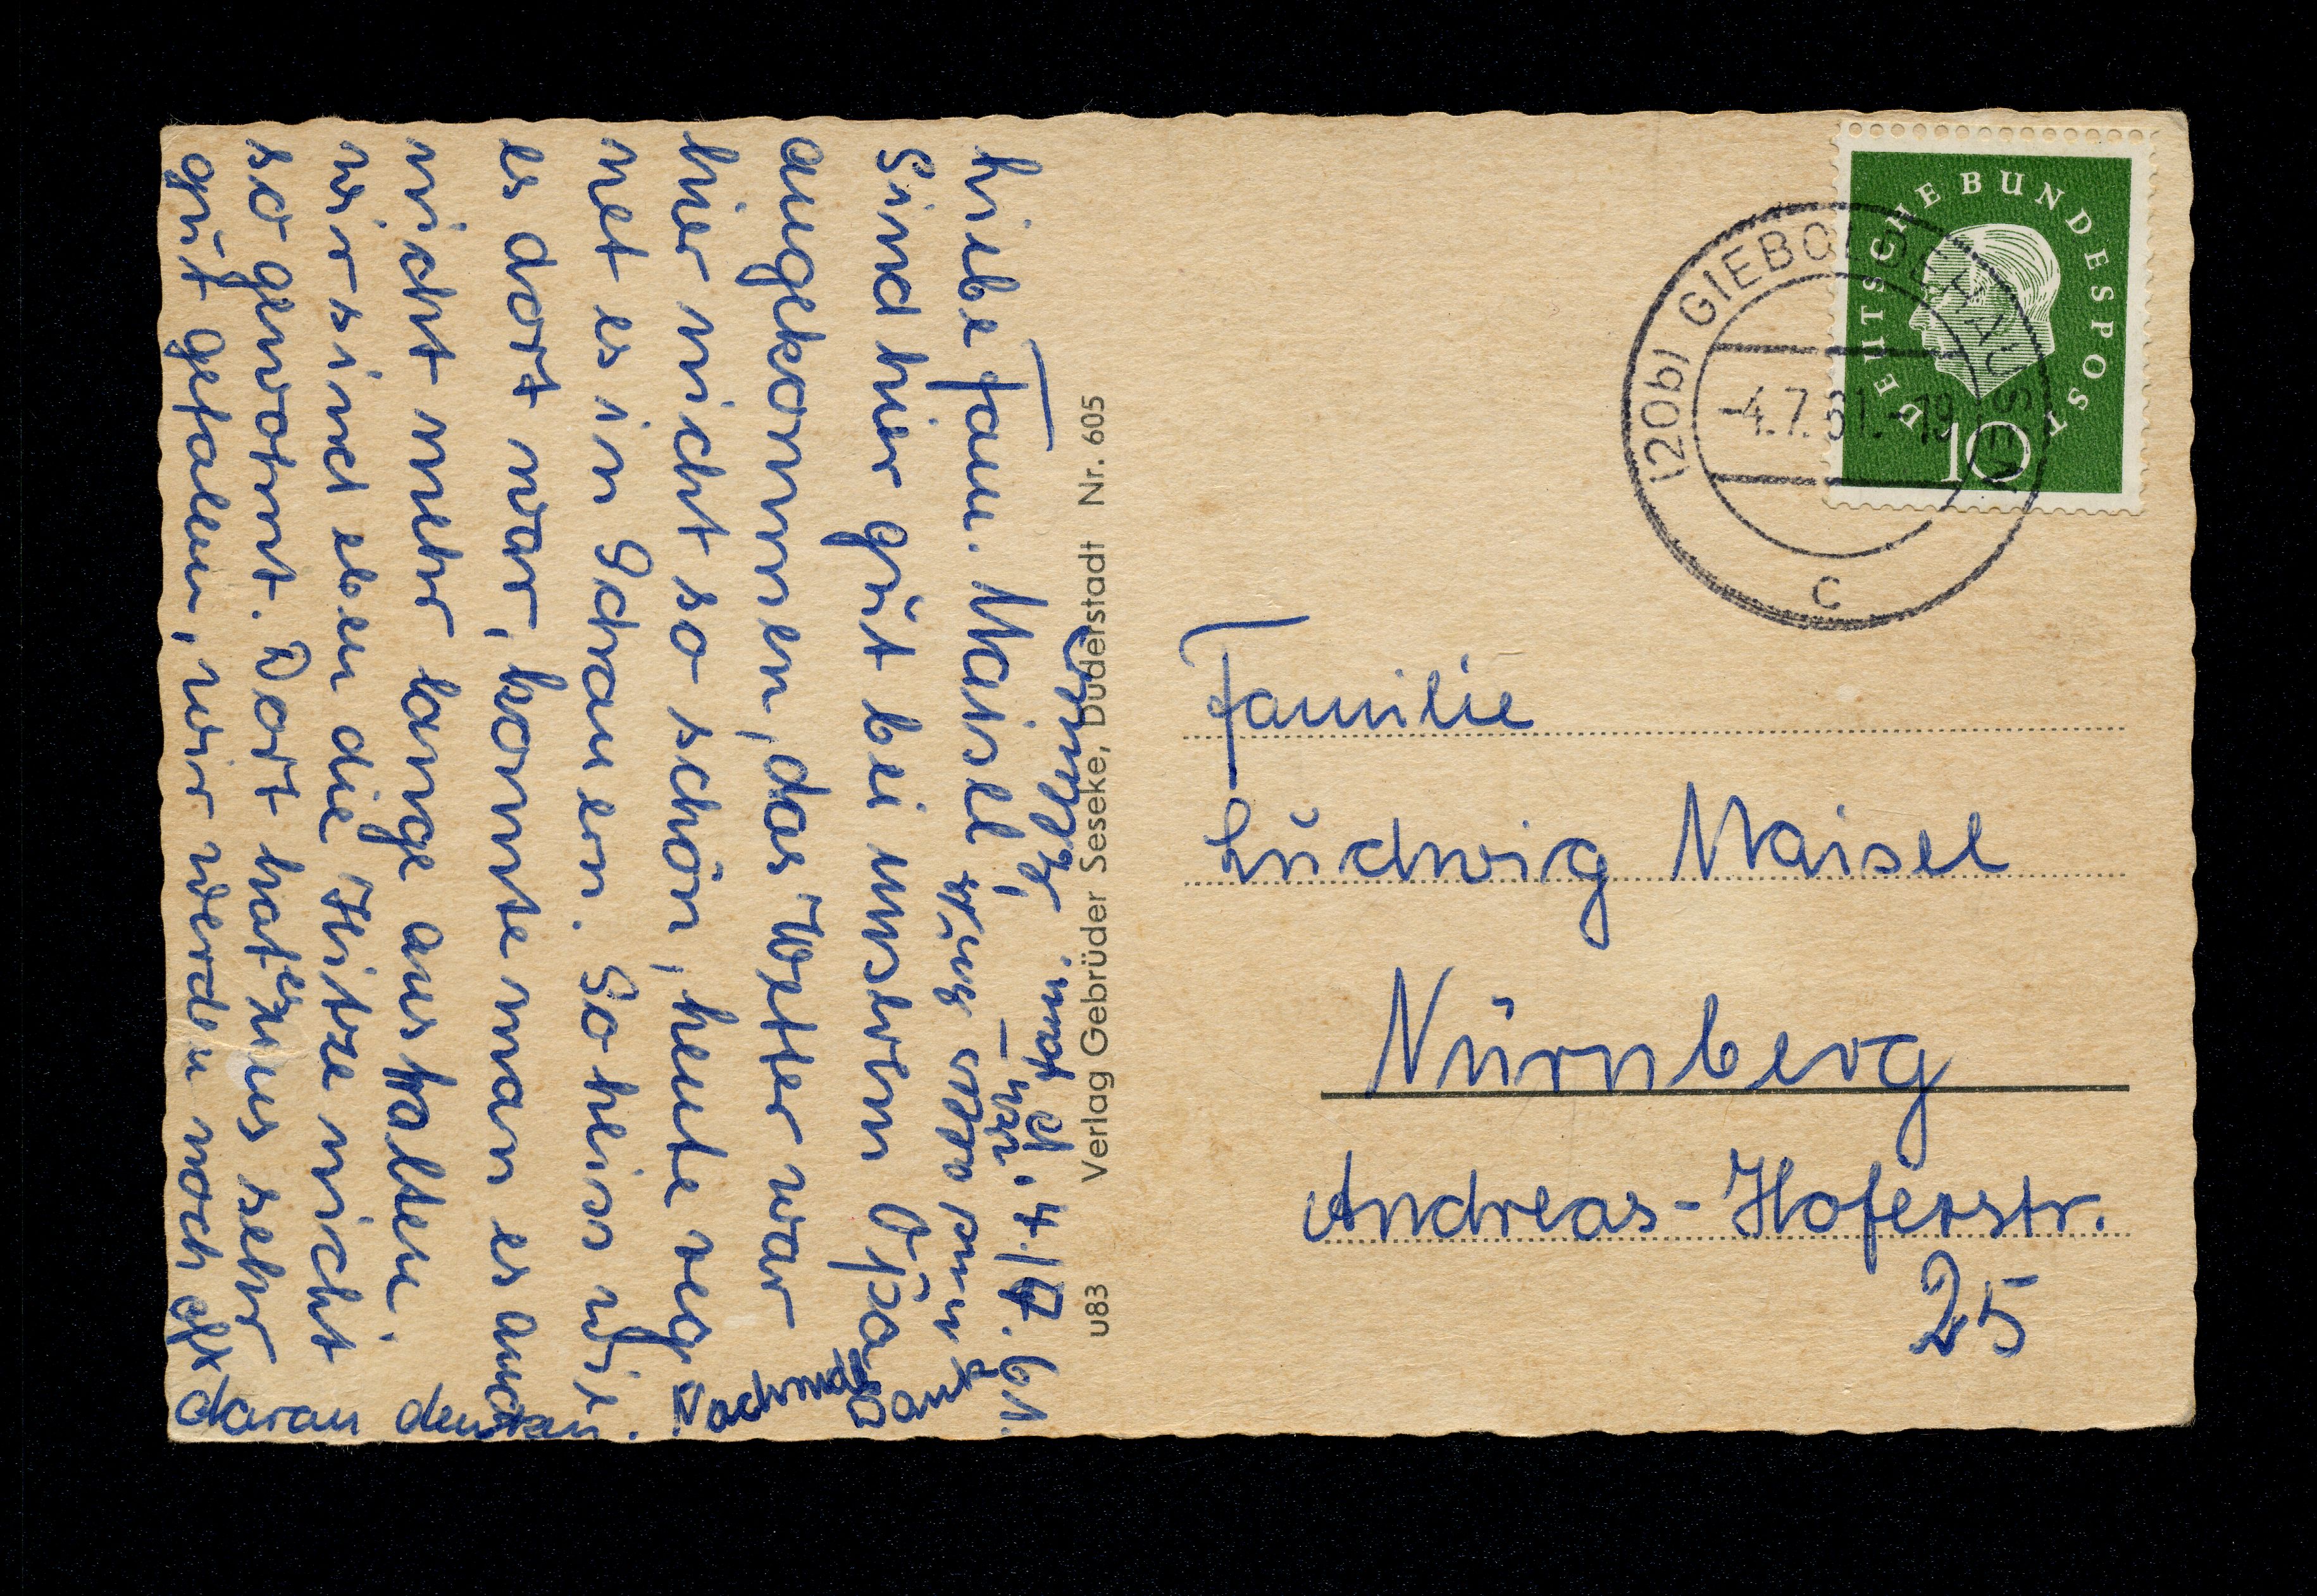 Liebe Fam. Maisel! 4./7. 61.
Sind hier gut bei unserm Opa
angekommen, das Wetter war
hier nicht so schön, heute reg=
net es in Schauern. So heiss wie
es dort war, konnte man es auch
nicht mehr lange aushalten.
wir sind eben die Hitze nicht
so gewohnt. Dort hat es uns sehr
gut gefallen, wir werden noch oft
daran denken.
u83 Verlag Gebrüder Seseke, Duderstadt Nr. 605
DEUTSCHE BUNDESPOST
10
(20b) GIEBOLDEHAUSEN
-4.7.61.-19
c
Familie
Ludwig Maisel
Nürnberg
Andreas-Hoferstr.
25